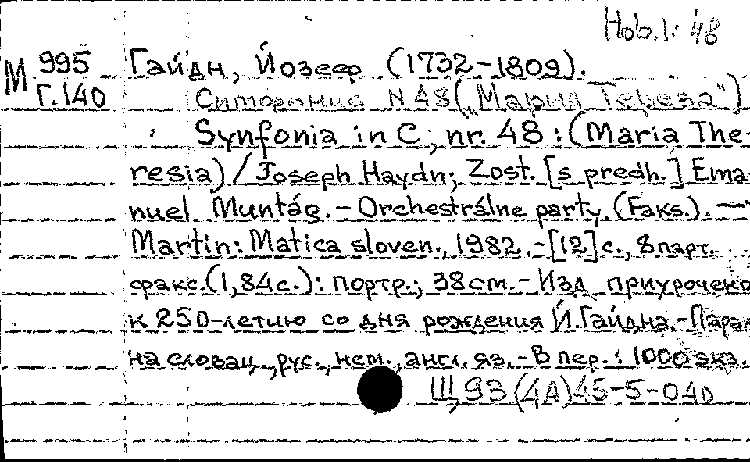 Hob.I: 48
М 995 Гайдн, Йозеф (1732-1809).
Г.140 Симфония N 48 („Мария Тереза")
Synfonia in C, nr. 48 : (Maria The-
resia) / Joseph Haydn; Zost. [s predh.] Ema-
nuel Muntág. - Orchestrálne party. (Faks.). -
Martin: Matica sloven., 1982. - [12] с., 8 парт.
факс. (1,84с.): портр.; 38cm. - Изд. приурочено
к 250-летию со дня рождения Й. Гайдна. - Парал.
на словац., рус., нем., англ. яз. - В пер.: 1000 экз.
Щ93(4А)45-5-040